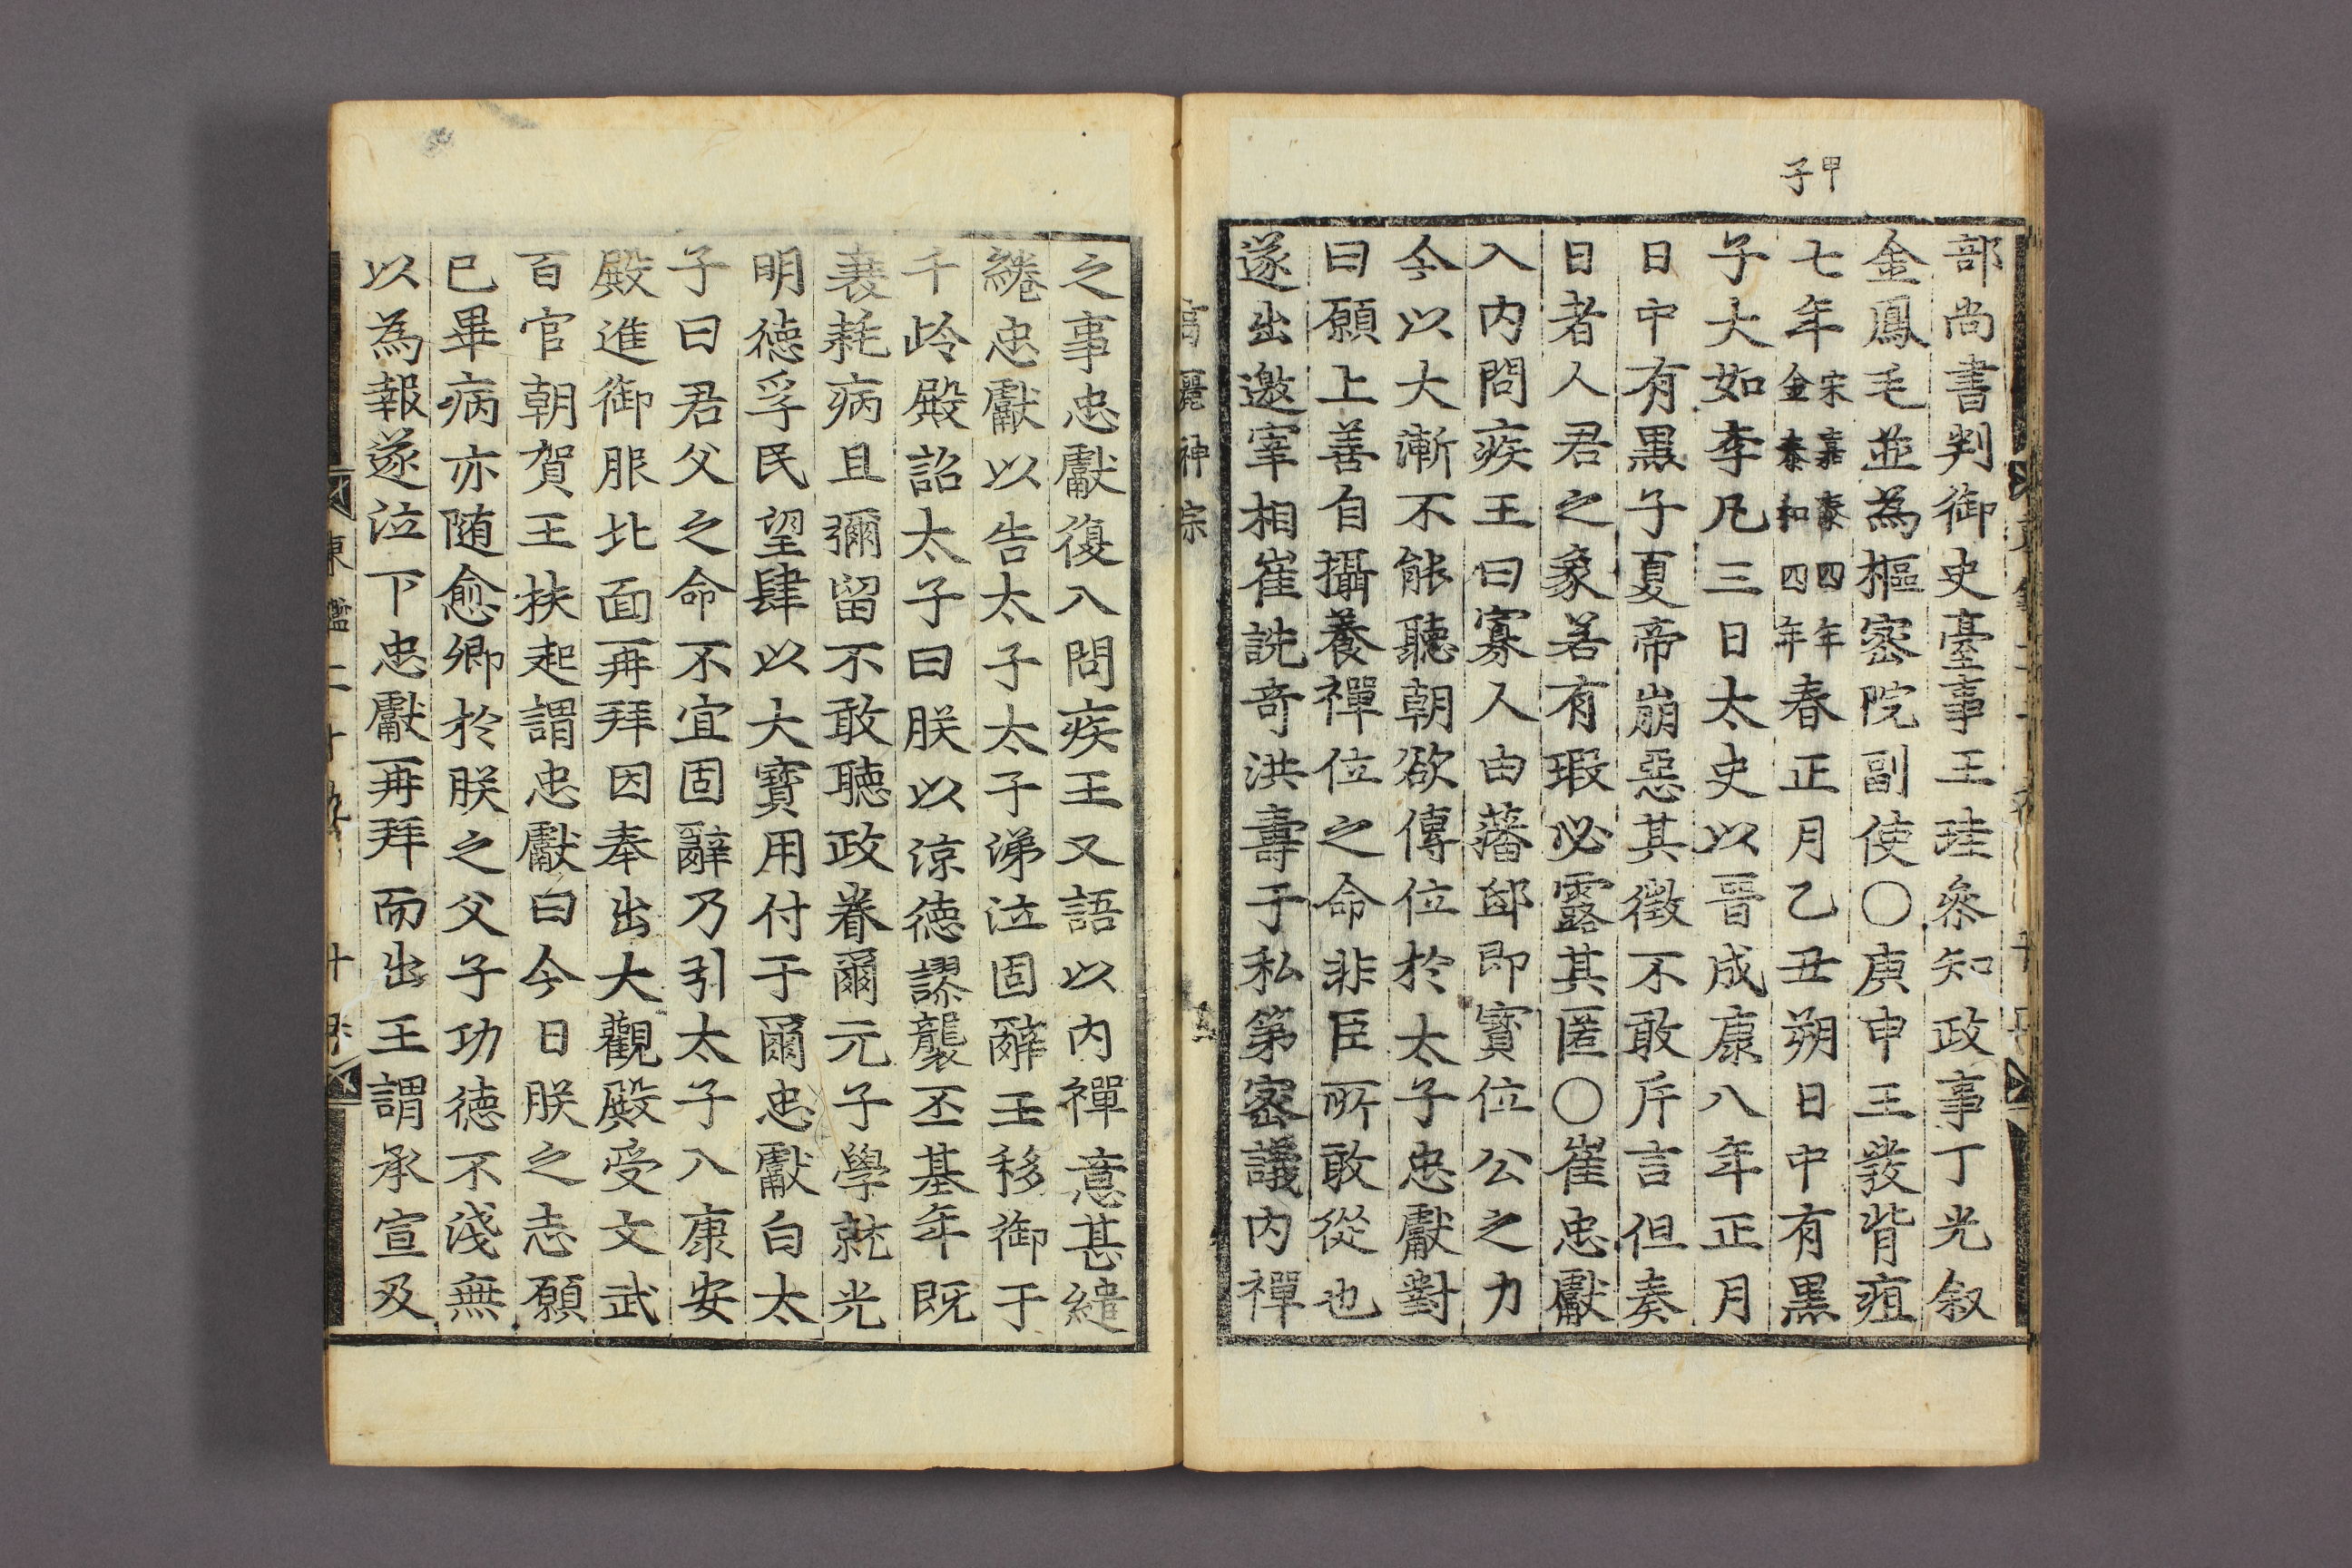 甲子
部尚書判御史臺事王珪叅知政事丁光叙
金鳳毛並為樞密院副使〇庚申王發背疽
七年宋嘉泰四年金泰和四年春正月乙丑朔日中有黒
子大如李凡三日太史以晉成康八年正月
日中有黒子夏帝崩惡其徵不敢斥言但奏
日者人君之象若有瑕必露其匿〇崔忠獻
入内問疾王曰寡人由藩邸即寳位公之力
今以大漸不能聽朝欲傳位於太子忠獻對
曰願上善自攝養禪位之命非臣所敢從也
遂出邀宰相崔詵竒洪壽于私第密議内禪
高麗神宗
之事忠獻復入問疾王又語以内禪意甚繾
綣忠獻以告太子太子涕泣固辭王移御于
千岭殿詔太子曰朕以涼徳謬襲丕基年既
衰耗病且彌留不敢聽政眷爾元子學就光
明徳孚民望肆以大寳用付于爾忠獻白太
子曰君父之命不宜固辭乃引太子入康安
殿進御服北面再拜因奉出大觀殿受文武
百官朝賀王扶起謂忠獻曰今日朕之志願
已畢病亦随愈卿於朕之父子功徳不淺無
以為報遂泣下忠獻再拜而出王謂承宣及
東鑑二十